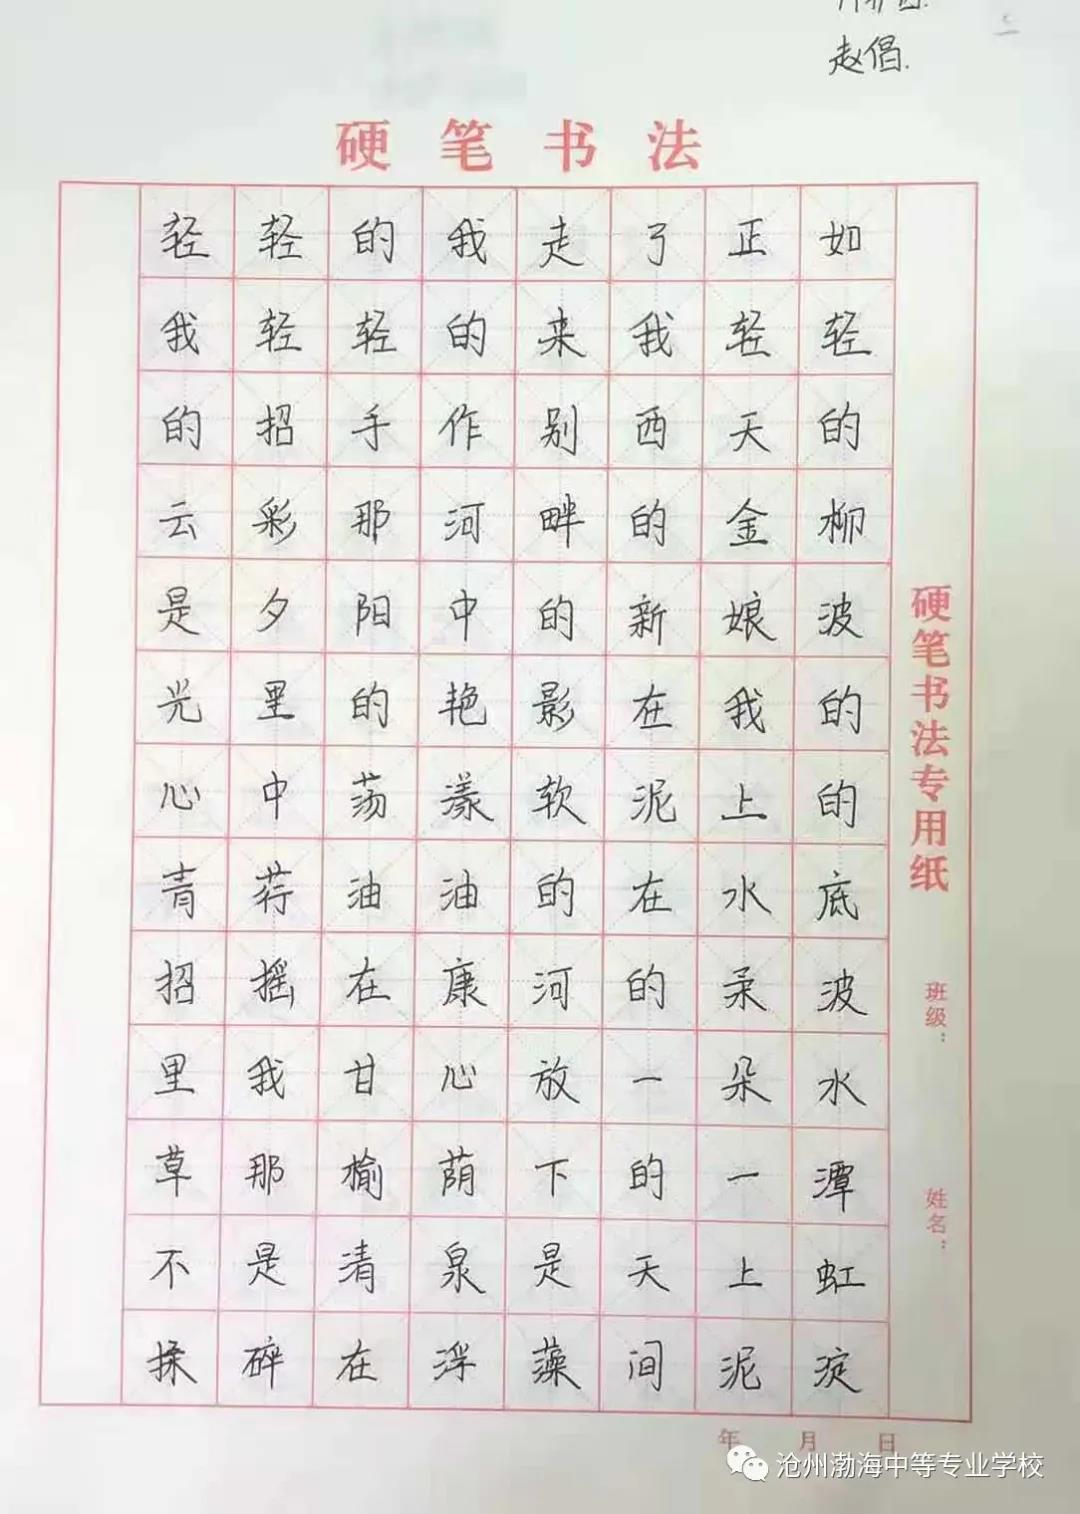 赵倡.
硬笔书法
轻轻的我走了正如
我轻轻的来我轻轻
的招手作别西天的
云彩那河畔的金柳
是夕阳中的新娘波
光里的艳影在我的
心中荡漾软泥上的
青荇油油的在水底
招摇在康河的柔波
里我甘心放一朵水
草那榆荫下的一潭
不是清泉是天上虹
揉碎在浮藻间泥淀
硬笔书法专用纸
班级：
姓名：
年 月 日
沧州渤海中等专业学校